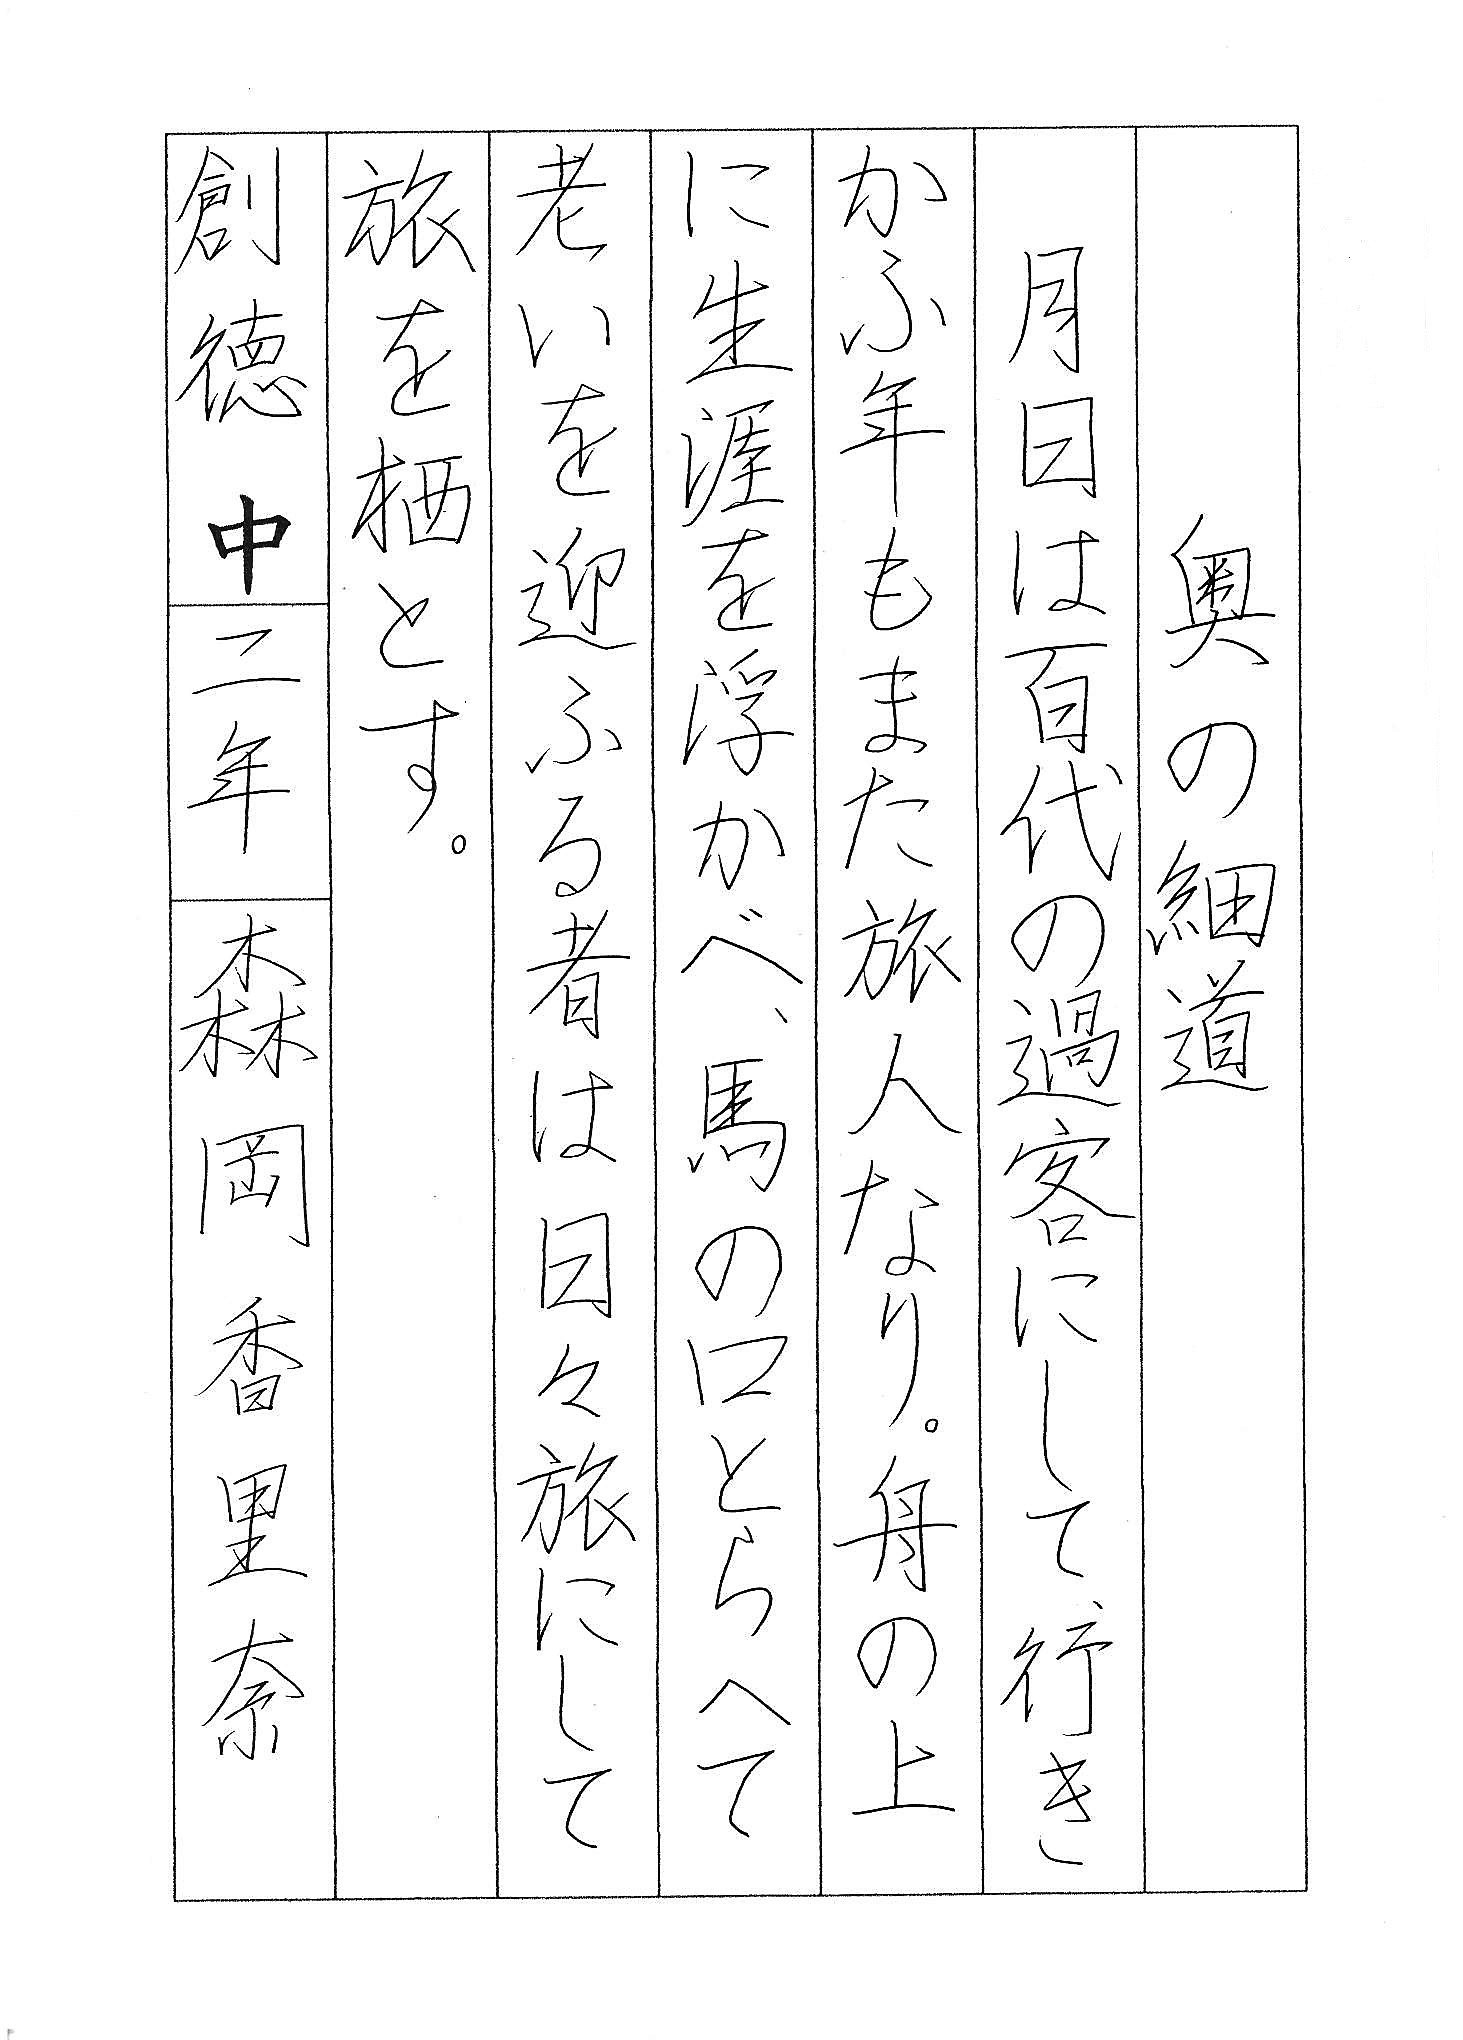 奥の細道
月日は百代の過客にして、行き
かふ年もまた旅人なり。舟の上
に生涯を浮かべ、馬の口とらへて
老いを迎ふる者は日々旅にして
旅を栖とす。
創徳中 二年 森岡香里奈